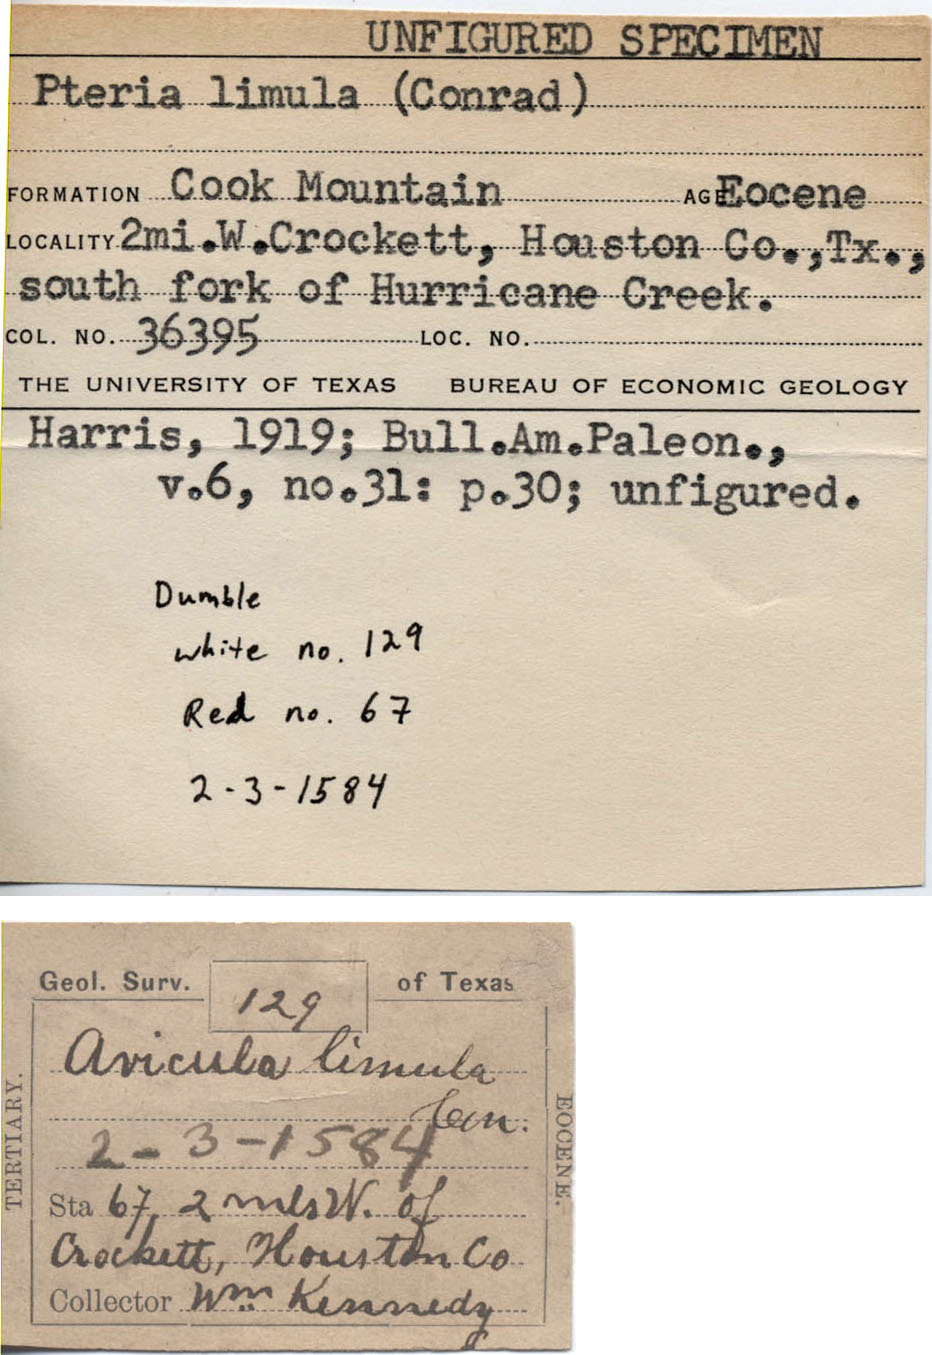 UNFIGURED SPECIMEN
Pteria limula (Conrad)
FORMATION Cook Mountain AGE Eocene
LOCALITY 2mi.W.Crockett, Houston Co.,Tx.,
south fork of Hurricane Creek.
COL. NO. 36395 LOC. NO.
THE UNIVERSITY OF TEXAS BUREAU OF ECONOMIC GEOLOGY
Harris, 1919; Bull.Am.Paleon.,
v.6, no.31: p.30; unfigured.
Dumble
white no. 129
Red no. 67
2-3-1584
Geol. Surv. 129 of Texas
Avicula limula
Con.
2-3-1584
Sta 67, 2 mls W. of
Crockett, Houston Co
Collector Wm Kennedy
TERTIARY.
EOCENE.